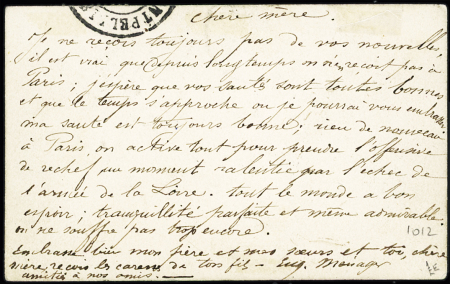 MTPELLIER
chère mère.
Je ne reçois toujours pas de vos nouvelles,
il est vrai que depuis longtemps on n'en reçoit pas à
Paris; j'espère que vos santés sont toutes bonnes
et que le temps s'approche ou je pourrai vous embrasser
ma santé est toujours bonne; rien de nouveau
à Paris, on active tout pour prendre l'offensive
de rechef un moment ralentie par l'échec de
l'armée de la Loire. tout le monde a bon
espoir; tranquillité parfaite et même admirable.
on ne souffre pas trop encore.
1012
Embrasse bien mon père et mes sœurs et toi, chère
mère, reçois les caresses de ton fils — Eug. Ménager
amitiés à nos amis. —